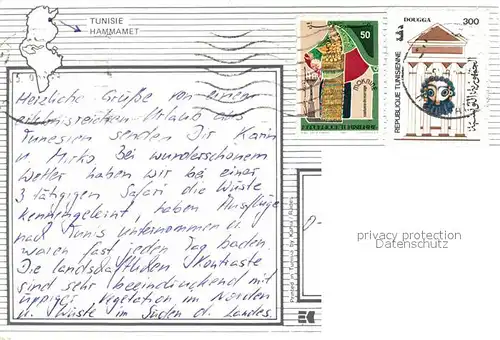 TUNISIE
HAMMAMET
Herzliche Grüße von einem
erlebnisreichen Urlaub aus
Tunesien senden Dir, Karin
u. Mirko. Bei wunderschönem
Wetter haben wir bei einer
3 tägigen Safari die Wüste
kennengelernt, haben Ausflüge
nach Tunis unternommen u.
waren fast jeden Tag baden.
Die landschaftlichen Kontraste
sind sehr beeindruckend mit
üppiger Vegetation im Norden
u. Wüste im Süden d. Landes.
50
REPUBLIQUE TUNISIENNE
DOUGGA
300
دقة
REPUBLIQUE TUNISIENNE
الجمهورية التونسية
Printed in Tunisia by
D-
privacy protection
Datenschutz